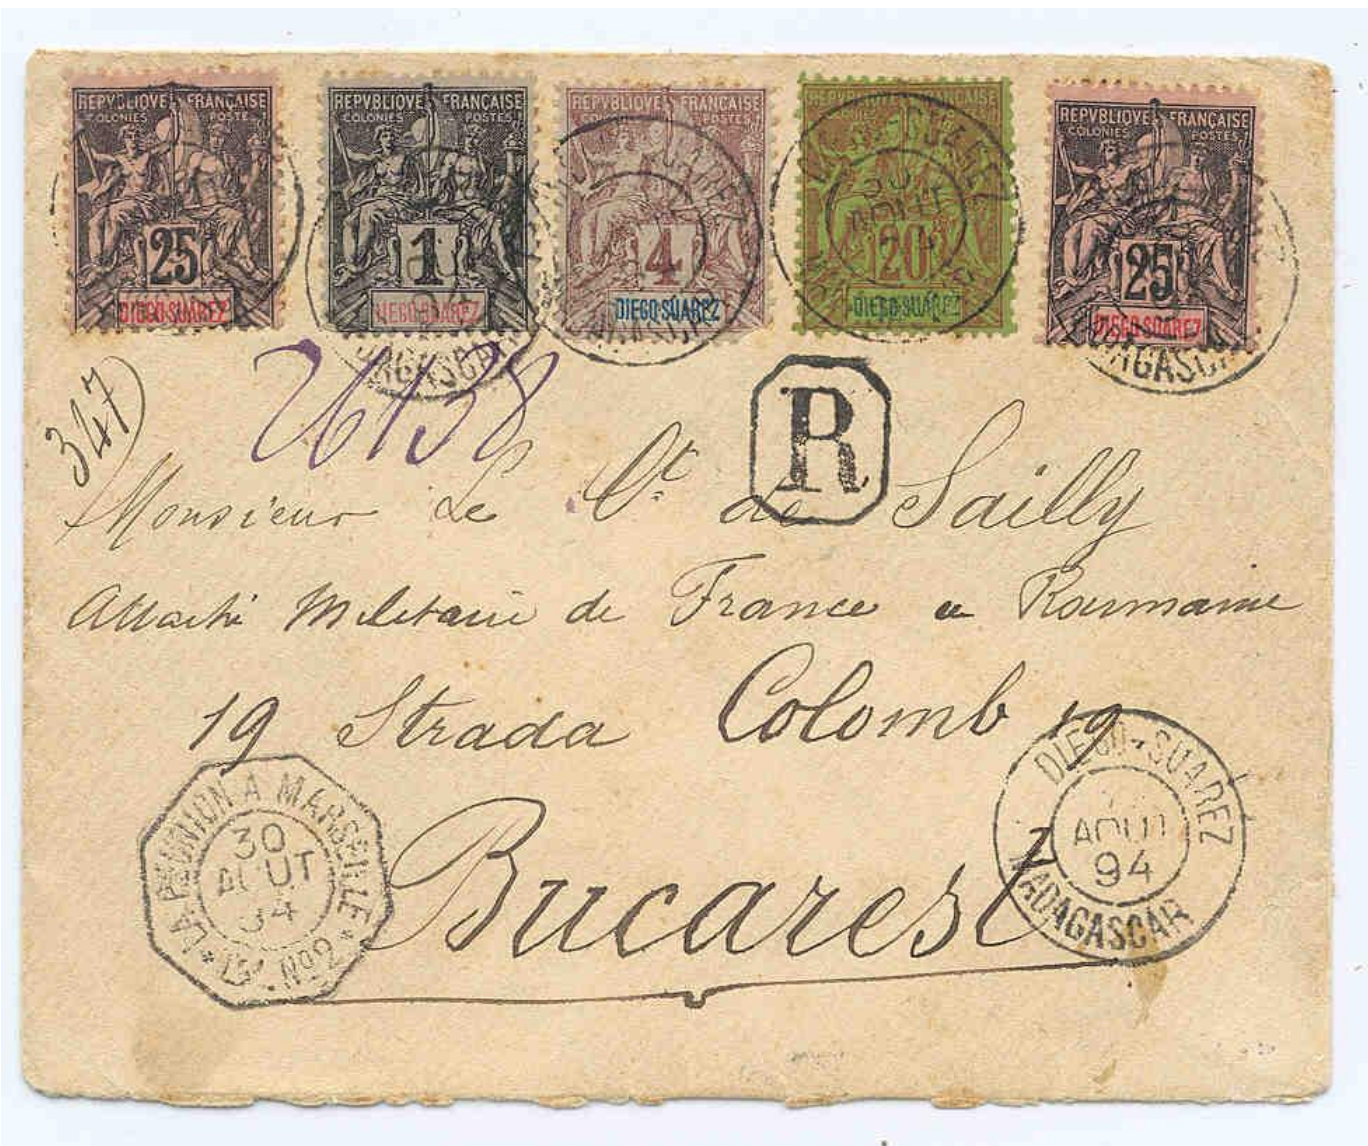 REPVBLIQVE FRANÇAISE
COLONIES POSTES
25
DIEGO-SUAREZ
REPVBLIQVE FRANÇAISE
COLONIES POSTES
1
DIEGO-SUAREZ
REPVBLIQVE FRANÇAISE
COLONIES POSTES
4
DIEGO-SUAREZ
REPVBLIQVE FRANÇAISE
20
DIEGO-SUAREZ
REPVBLIQVE FRANÇAISE
COLONIES POSTES
25
DIEGO-SUAREZ
347
26138
R
Monsieur Le Ct de Sailly
Attaché Militaire de France en Roumanie
19 Strada Colomb 19
Bucarest
LA REUNION A MARSEILLE
30
AOUT
94
Nº2
DIEGO-SUAREZ
AOUT
94
MADAGASCAR